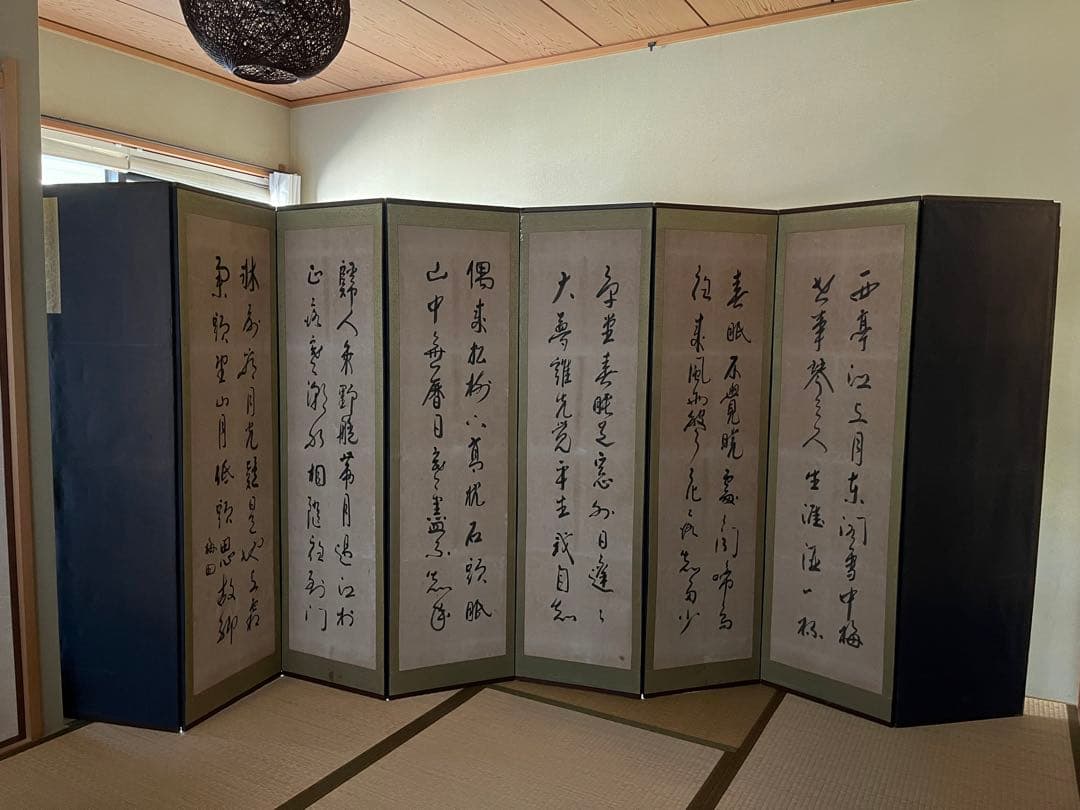 西亭江上月東閣雪中梅
世事琴三尺生涯酒一杯
春眠不覺曉處〻聞啼鳥
夜来風雨聲花落知多少
草堂春睡足窓外日遲〻
大夢誰先覚平生我自知
偶来松樹下高枕石頭眠
山中無暦日寒盡不知年
歸人乗野艇帶月過江村
正落寒潮水相隨夜到門
牀前看月光疑是地上霜
擧頭望山月低頭思故郷
梅田